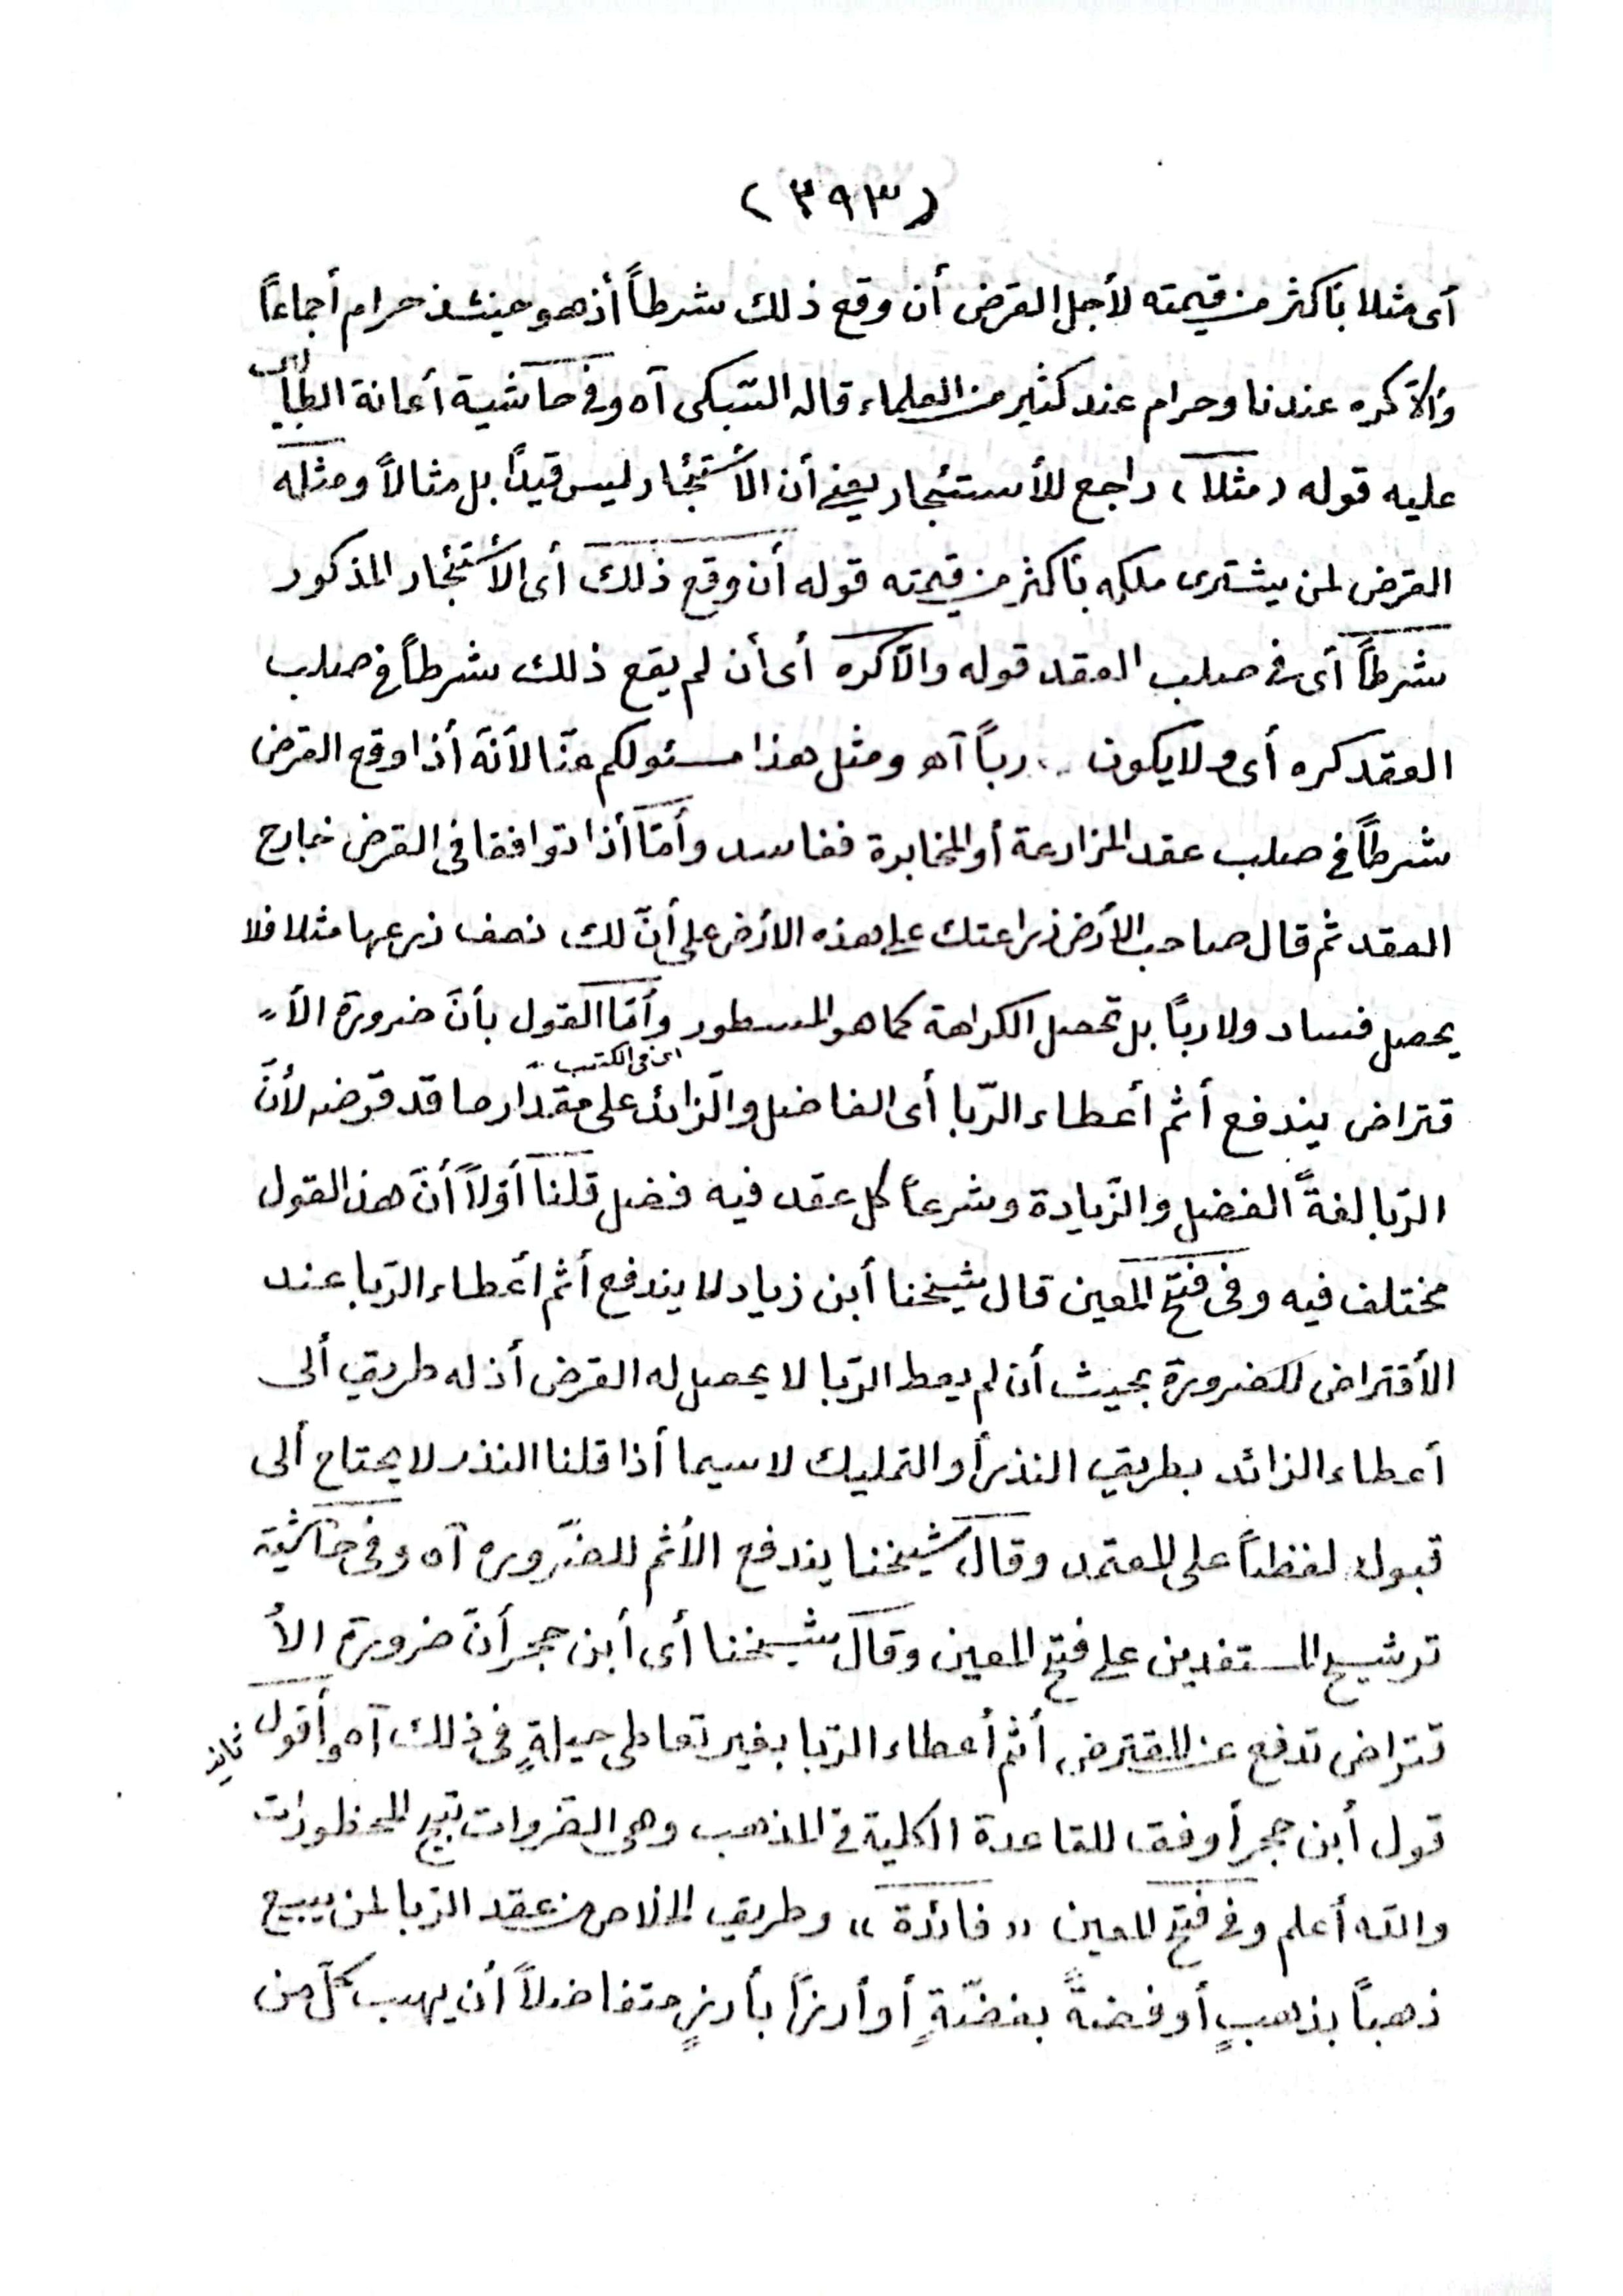 (٣٩٣)
أى مثلا بأكثر من قيمته لأجل القرض أن وقع ذلك شرطاً أذهو حينئذ حرام أجماعاً
وألاّ كره عندنا وحرام عند كثير من العلماء قاله السّبكى آه وفى حاشية أعانة الطّالبين
عليه قوله (مثلا) راجع للأستئجار يعنى أن الأستئجار ليس قيداً بل مثالاً ومثله
القرض لمن يشترى ملكه بأكثر من قيمته قوله أن وقع ذلك أى الأستئجار المذكور
شرطاً أى فى صلب العقد قوله والاّكره أى أن لم يقع ذلك شرطاً فى صلب
العقد كره أى ولا يكون رباً آهـ ومثل هذا مسئولكم عنّا لأنّه أذا وقع القرض
شرطاً فى صلب عقد المزارعة أو المخابرة ففاسد وأمّا أذا توافقا فى القرض خارج
العقد ثم قال صاحب الأرض زراعتك على هذه الارض على أنّ لك نصف زرعها مثلا فلا
يحصل فساد ولا رباً بل تحصل الكراهة كما هو المسطور وأمّا القول بأنّ ضرورة الأ
اى فى الكتب
قتراض يندفع أثم أعطاء الرّبا أى الفاضل والزائد على مقدار ما قد قرضه لأنّ
الرّبا لغةً الفضل والزّيادة وشرعاً كل عقد فيه فضل قلنا أوّلاً أنّ هذ القول
مختلف فيه وفى فتح المعين قال شيخنا أبن زياد لا يندفع أثم أعطاء الرّبا عند
الأقتراض للضرورة بحيث أن لم يعط الرّبا لا يحصل له القرض أذ له طريق ألى
أعطاء الزائد بطريق النذر أو التمليك لا سيما أذا قلنا النذر لا يحتاج ألى
قبول لفظاً على المعتمد وقال شيخنا يندفع الأثم للضّروره آه وفى حاشية
ترشيح المستفدين على فتح المعين وقال شيخنا أى أبن حجر أنّ ضرورة الأ
قتراض تدفع عن المقترض أثم أعطاء الرّبا بغير تعاطى حيلةٍ فى ذلك آه وأقول
قول أبن حجر أوفق للقاعدة الكلية فى المذهب وهى الضّروات تبيح المحظورات
والله أعلم وفى فتح المعين «فائدة» وطريق الخلاص من عقد الرّبا لمن يبيع
ذهباً بذهبٍ أو فضةً بفضّةٍ أو أرزاً بأرزٍ متفاضلاً أن يهب كلّ من